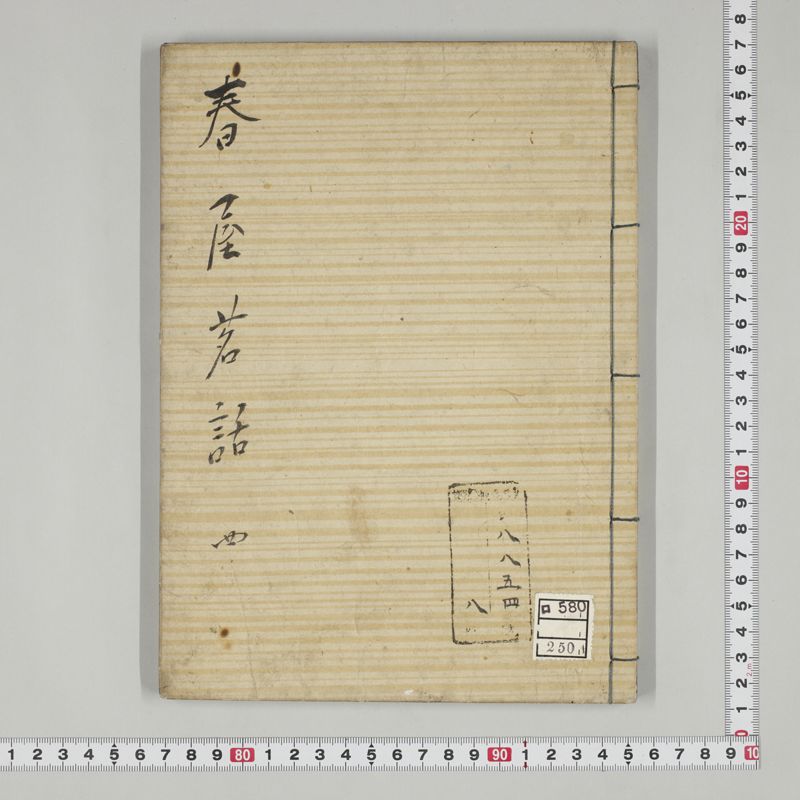 春屋茗話 四
八八五四
八
ロ 580
250
8
7
6
5
4
3
2
1
20
9
8
7
6
5
4
3
2
1
10
9
8
7
6
5
4
3
2
1
0
1 2 3 4 5 6 7 8 9 80 1 2 3 4 5 6 7 8 9 90 1 2 3 4 5 6 7 8 9 10